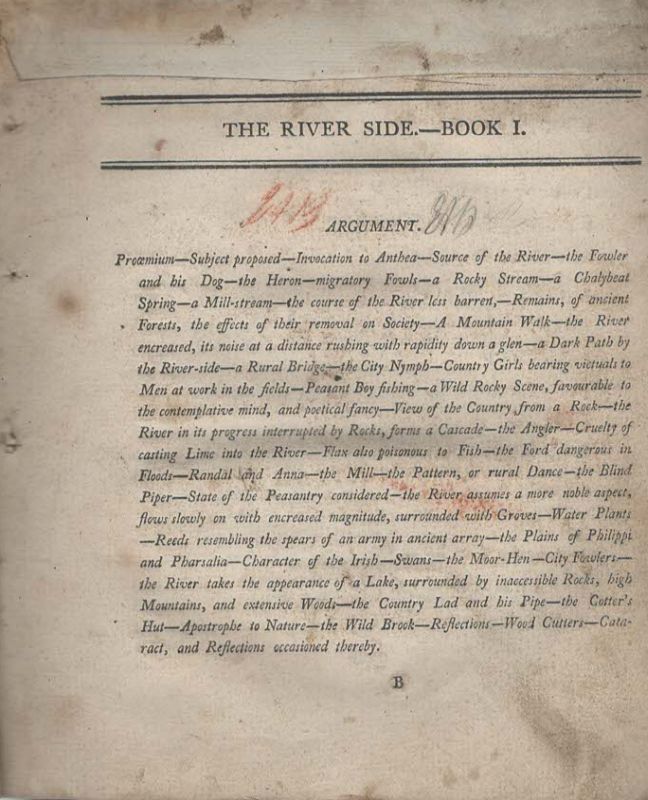 THE RIVER SIDE.—BOOK I.
ARGUMENT.
Proœmium—Subject proposed—Invocation to Anthea—Source of the River—the Fowler
and his Dog—the Heron—migratory Fowls—a Rocky Stream—a Chalybeat
Spring—a Mill-stream—the course of the River less barren,—Remains, of ancient
Forests, the effects of their removal on Society—A Mountain Walk—the River
encreased, its noise at a distance rushing with rapidity down a glen—a Dark Path by
the River-side—a Rural Bridge—the City Nymph—Country Girls bearing victuals to
Men at work in the fields—Peasant Boy fishing—a Wild Rocky Scene, favourable to
the contemplative mind, and poetical fancy—View of the Country from a Rock—the
River in its progress interrupted by Rocks, forms a Cascade—the Angler—Cruelty of
casting Lime into the River—Flax also poisonous to Fish—the Ford dangerous in
Floods—Randal and Anna—the Mill—the Pattern, or rural Dance—the Blind
Piper—State of the Peasantry considered—the River assumes a more noble aspect,
flows slowly on with encreased magnitude, surrounded with Groves—Water Plants
—Reeds resembling the spears of an army in ancient array—the Plains of Philippi
and Pharsalia—Character of the Irish—Swans—the Moor-Hen—City Fowlers—
the River takes the appearance of a Lake, surrounded by inaccessible Rocks, high
Mountains, and extensive Woods—the Country Lad and his Pipe—the Cotter's
Hut—Apostrophe to Nature—the Wild Brook—Reflections—Wood Cutters—Cata-
ract, and Reflections occasioned thereby.
B